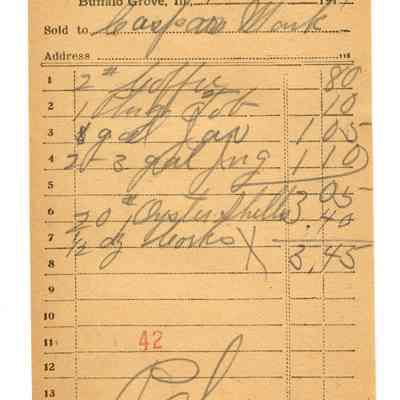 Buffalo Grove, Ill., 191
Sold to Caspar Monk
Address
1 2# Coffee 80
2 1 Plug Tob 10
3 8 gal Gas 1 05
4 20 - 3 gal Jug 1 10
5 3 05
6 20# Oyster Shells .40
7 1/2 dz X
8 3.45
9
10
11 42
12
13